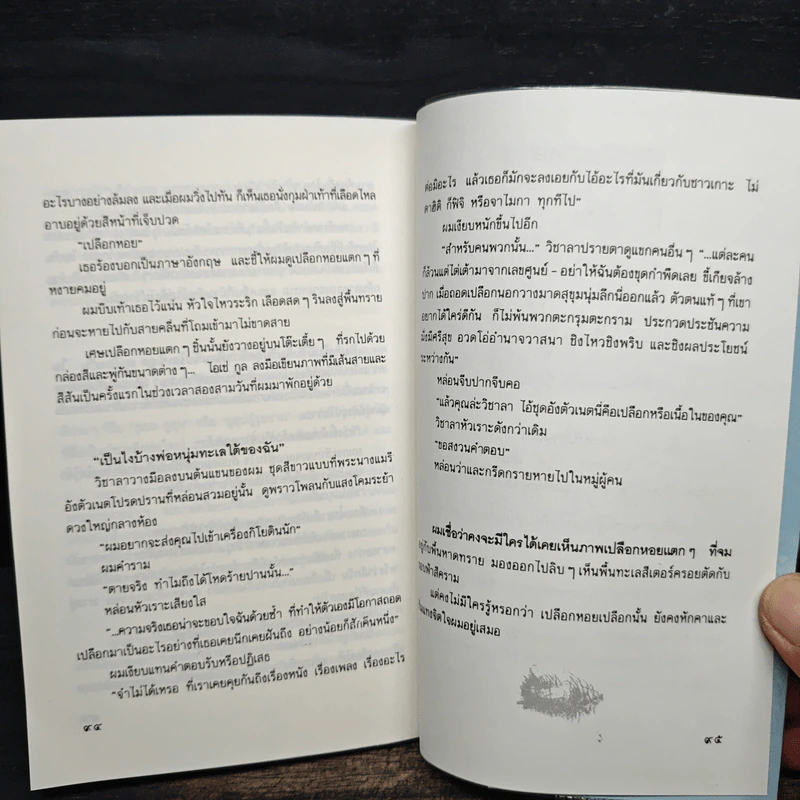 อะไรบางอย่างล้มลง และเมื่อผมวิ่งไปทัน ก็เห็นเธอนั่งกุมฝ่าเท้าที่เลือดไหล
อาบอยู่ด้วยสีหน้าที่เจ็บปวด
"เปลือกหอย"
เธอร้องบอกเป็นภาษาอังกฤษ และชี้ให้ผมดูเปลือกหอยแตกๆ ที่
หงายคมอยู่
ผมบีบเท้าเธอไว้แน่น หัวใจไหวระริก เลือดสดๆ รินลงสู่พื้นทราย
ก่อนจะหายไปกับสายคลื่นที่โถมเข้ามาไม่ขาดสาย
เศษเปลือกหอยแตกๆ ชิ้นนั้นยังวางอยู่บนโต๊ะเตี้ยๆ ที่รกไปด้วย
กล่องสีและพู่กันขนาดต่างๆ... ไอเช่ กูล ลงมือเขียนภาพที่มีเส้นสายและ
สีสันเป็นครั้งแรกในช่วงเวลาสองสามวันที่ผมมาพักอยู่ด้วย
"เป็นไงบ้างพ่อหนุ่มทะเลใต้ของฉัน"
วิชาลาวางมือลงบนต้นแขนของผม ชุดสีขาวแบบที่พระนางแมรี
อังตัวเนตโปรดปรานที่หล่อนสวมอยู่นั้น ดูพราวโพลนกับแสงโคมระย้า
ดวงใหญ่กลางห้อง
"ผมอยากจะส่งคุณไปเข้าเครื่องกิโยตินนัก"
ผมคำราม
"ตายจริง ทำไมถึงได้โหดร้ายปานนั้น..."
หล่อนหัวเราะเสียงใส
"...ความจริงเธอน่าจะขอบใจฉันด้วยซ้ำ ที่ทำให้ตัวเองมีโอกาสถอด
เปลือกมาเป็นอะไรอย่างที่เธอเคยนึกเคยฝันถึง อย่างน้อยก็สักคืนหนึ่ง"
ผมเงียบแทนคำตอบรับหรือปฏิเสธ
"จำไม่ได้เหรอ ที่เราเคยคุยกันถึงเรื่องหนัง เรื่องเพลง เรื่องอะไร
๙๔
ต่อมิอะไร แล้วเธอก็มักจะลงเอยกับไอ้อะไรที่มันเกี่ยวกับชาวเกาะ ไม่
ตาฮิติ ก็ฟิจิ หรือจาไมกา ทุกทีไป"
ผมเงียบหนักขึ้นไปอีก
"สำหรับคนพวกนั้น..." วิชาลาปรายตาดูแขกคนอื่นๆ "...แต่ละคน
ก็ล้วนแต่ไต่เต้ามาจากเลขศูนย์ - อย่าให้ฉันต้องขุดกำพืดเลย ขี้เกียจล้าง
ปาก เมื่อถอดเปลือกนอกวางมาดสุขุมนุ่มลึกนี่ออกแล้ว ตัวตนแท้ๆ ที่เขา
อยากได้ใคร่ดีกัน ก็ไม่พ้นพวกตะกรุมตะกราม ประกวดประชันความ
มั่งมีศรีสุข อวดโอ่อำนาจวาสนา ชิงไหวชิงพริบ และชิงผลประโยชน์
ระหว่างกัน"
หล่อนจีบปากจีบคอ
"แล้วคุณล่ะวิชาลา ไอ้ชุดอังตัวเนตนี่คือเปลือกหรือเนื้อในของคุณ"
วิชาลาหัวเราะดังกว่าเดิม
"ขอสงวนคำตอบ"
หล่อนว่าและกรีดกรายหายไปในหมู่ผู้คน
ผมเชื่อว่าคงจะมีใครได้เคยเห็นภาพเปลือกหอยแตกๆ ที่จม
อยู่กับพื้นหาดทราย มองออกไปลิบๆ เห็นพื้นทะเลสีเตอร์ควอยตัดกับ
ของฟ้าสีคราม
แต่คงไม่มีใครรู้หรอกว่า เปลือกหอยเปลือกนั้น ยังคงหักคาและ
ทิ่มแทงจิตใจผมอยู่เสมอ
๙๕